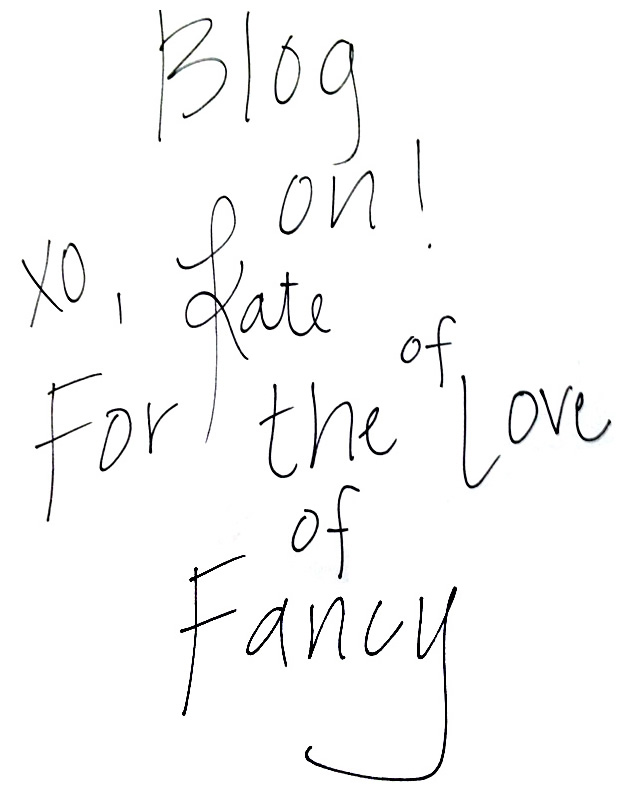 Blog
on!
xo, Kate
For the of Love
of
Fancy